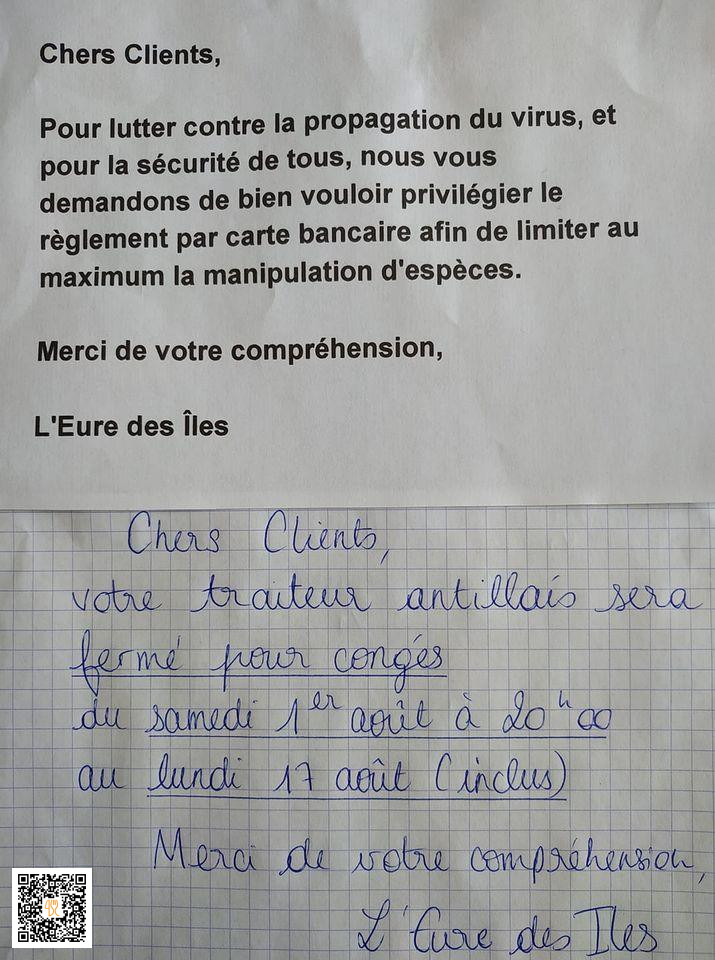 Chers Clients,
Pour lutter contre la propagation du virus, et
pour la sécurité de tous, nous vous
demandons de bien vouloir privilégier le
règlement par carte bancaire afin de limiter au
maximum la manipulation d'espèces.
Merci de votre compréhension,
L'Eure des Îles
Chers Clients,
votre traiteur antillais sera
fermé pour congés
du samedi 1er août à 20h00
au lundi 17 août (inclus)
Merci de votre compréhension,
L'Eure des Iles